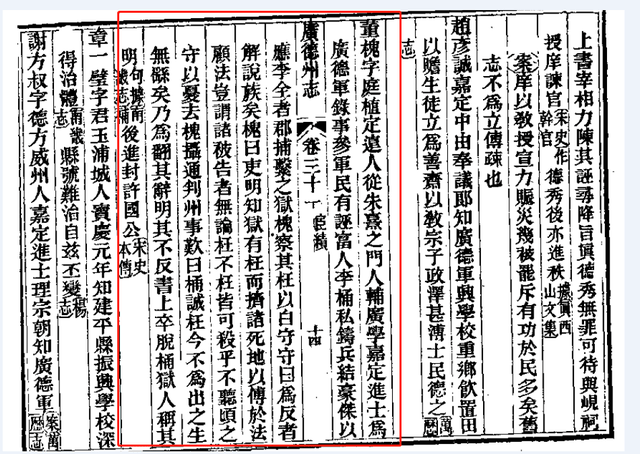 上書宰相力陳其誣尋降旨眞德秀無罪可待與峴祠
授庠諫官宋史作幹官德秀後亦進秩據眞西山文集
案庠以敎授宣力賑災幾被罷斥有功於民多矣舊
志不爲立傳疏也
趙彥誠嘉定中由奉議郎知廣德軍興學校重鄉飮置田
以贍生徒立爲善齋以敎宗子政澤甚溥士民德之萬歷
志
董槐字庭植定遠人從朱熹之門人輔廣學嘉定進士爲
廣德軍錄事參軍民有誣富人李桶私鑄兵結豪傑以
廣德州志 卷三十一 宦績 十四
應李全者郡捕繫之獄槐察其枉以白守守曰爲反者
解說族矣槐曰吏明知獄有枉而擠諸死地以傅於法
顧法豈謂諸被告者無論枉不枉皆可殺乎不聽頃之
守以憂去槐攝通判州事歎曰桶誠枉今不爲出之生
無繇矣乃爲翻其辭明其不反書上卒脫桶獄人稱其
明句據甯志補後進封許國公宋史本傳
章一璧字君玉浦城人寶慶元年知建平縣振興學校深
得治體甯叢志縣號難治自兹丕變楊志
謝方叔字德方威州人嘉定進士理宗朝知廣德軍案萬歷志